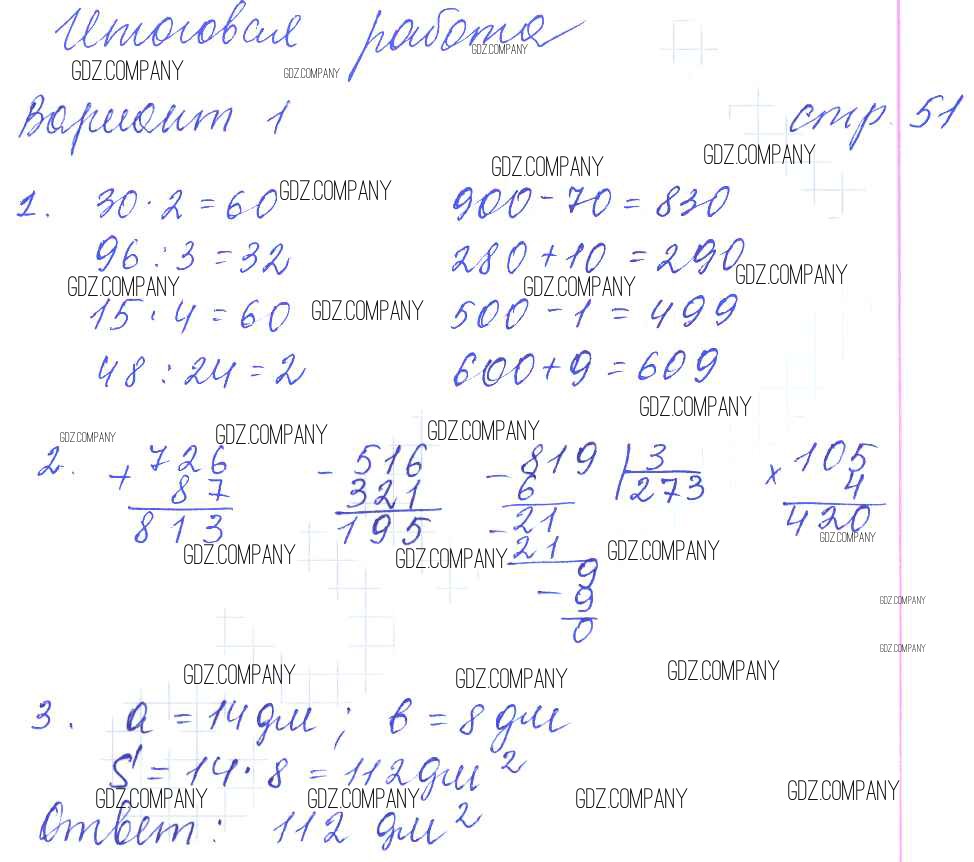 Итоговая работа
GDZ.COMPANY GDZ.COMPANY GDZ.COMPANY
Вариант 1 стр. 51
GDZ.COMPANY GDZ.COMPANY
1. 30 · 2 = 60 GDZ.COMPANY 900 - 70 = 830
96 : 3 = 32 280 + 10 = 290
GDZ.COMPANY GDZ.COMPANY GDZ.COMPANY
15 · 4 = 60 GDZ.COMPANY 500 - 1 = 499
48 : 24 = 2 600 + 9 = 609
GDZ.COMPANY
GDZ.COMPANY GDZ.COMPANY GDZ.COMPANY
2. + 726 - 516 - 819 | 3 x 105
87 321 6 273 4
813 195 - 21 420
GDZ.COMPANY GDZ.COMPANY 21 GDZ.COMPANY GDZ.COMPANY
9
- 9 GDZ.COMPANY
0
GDZ.COMPANY
GDZ.COMPANY GDZ.COMPANY GDZ.COMPANY
3. a = 14 дм ; в = 8 дм
S = 14 · 8 = 112 дм²
GDZ.COMPANY GDZ.COMPANY GDZ.COMPANY GDZ.COMPANY
Ответ : 112 дм²